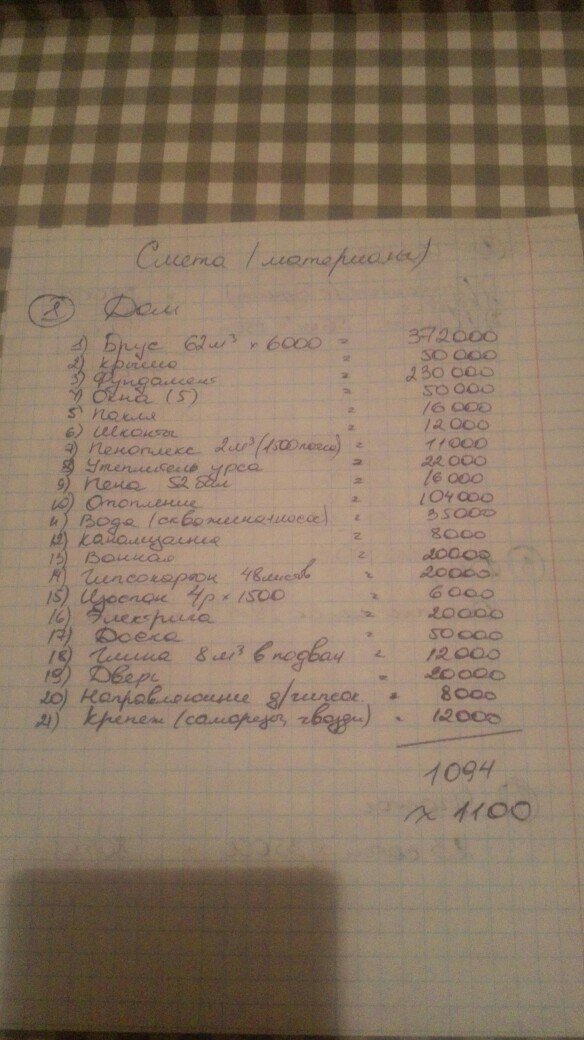 Смета (материалы)
1 Дом
1) Брус 62м³ × 6000 = 372000
2) крыша = 50 000
3) Фундамент = 230 000
4) Окна (5) = 50 000
5) Пакля = 16 000
6) Шканты = 12 000
7) Пеноплекс 2м³ (1500 ) = 11000
8) Утеплитель урса = 22 000
9) Пена 52 бал = 16 000
10) Отопление = 104 000
11) Вода (скважина+насос) = 35000
12) канализация = 8000
13) Ванная = 20000
14) Гипсокартон 48листов = 20000
15) Изоспан 4р × 1500 = 6 000
16) Электрика = 20000
17) Доска = 50000
18) Глина 8м³ в подвал = 12 000
19) Дверь = 20000
20) Направляющие д/гипсок. = 8000
21) Крепеж (саморезы, гвозди) = 12000
1094
≈ 1100